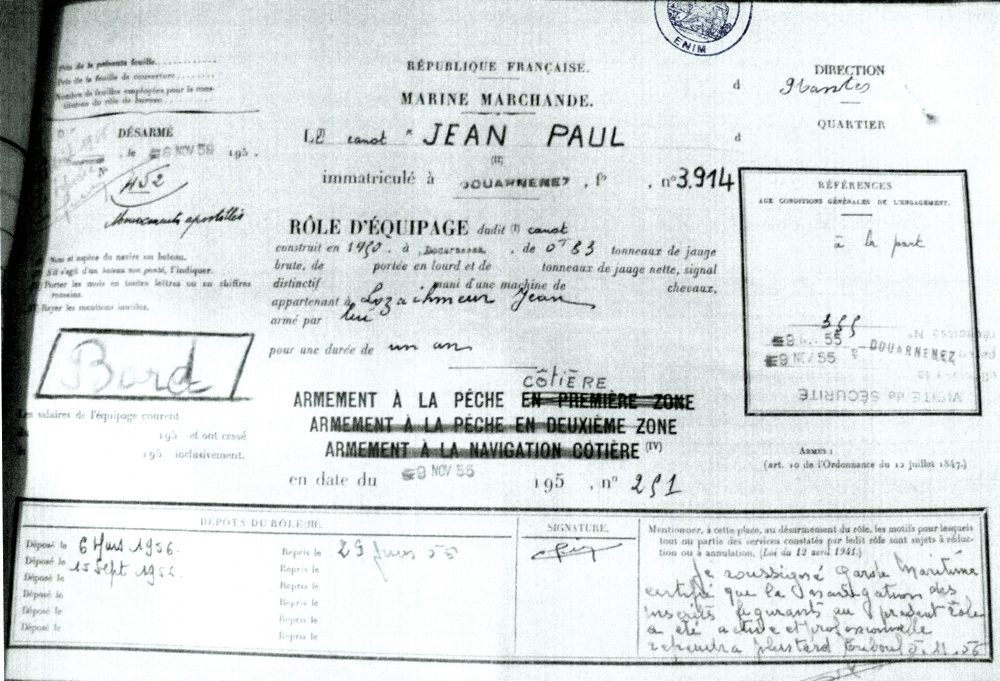 ENIM
Prix de la présente feuille
Prix de la feuille de couverture
Nombre de feuilles employées pour la cons-
titution du rôle de bureau
DÉSARMÉ
, le 6 NOV 56 195 .
N°
452
Mouvements apostillés
Nom et espèce du navire ou bateau.
S'il s'agit d'un bateau non ponté, l'indiquer.
Porter les mois en toutes lettres ou en chiffres
romains.
Rayer les mentions inutiles.
Bord
Les salaires de l'équipage courent
195 et ont cessé
195 inclusivement.
RÉPUBLIQUE FRANÇAISE.
MARINE MARCHANDE.
LE canot " JEAN PAUL
(II)
immatriculé à DOUARNENEZ , f° , n° 3.914
RÔLE D'ÉQUIPAGE dudit (I) canot
construit en 1950 . à DOUARNENEZ , de 0T83 tonneaux de jauge
brute, de portée en lourd et de tonneaux de jauge nette, signal
distinctif muni d'une machine de chevaux,
appartenant à Lozachmeur Jean
armé par lui
pour une durée de un an
CÔTIÈRE
ARMEMENT À LA PÊCHE EN PREMIÈRE ZONE
ARMEMENT À LA PÊCHE EN DEUXIÈME ZONE
ARMEMENT À LA NAVIGATION CÔTIÈRE (IV)
en date du 9 NOV 55 195 , n° 251
d DIRECTION
Nantes
d QUARTIER
RÉFÉRENCES
AUX CONDITIONS GÉNÉRALES DE L'ENGAGEMENT.
à la part
355
9 NOV 55 - DOUARNENEZ
9 NOV 55
VISITE de SÉCURITÉ
ARMES :
(art. 10 de l'Ordonnance du 12 juillet 1847.)
DÉPÔTS DU RÔLE (III).
SIGNATURE.
Déposé le 6 Mars 1956. Repris le 29 Mars 56
Déposé le 15 Sept 1956. Repris le
Déposé le Repris le
Déposé le Repris le
Déposé le Repris le
Déposé le Repris le
Mentionner, à cette place, au désarmement du rôle, les motifs pour lesquels
tout ou partie des services constatés par ledit rôle sont sujets à réduc-
tion ou à annulation. (Loi du 12 avril 1941.)
Je soussigné Garde Maritime
certifie que la navigation des
inscrits figurants au présent rôle
a été active et professionnelle
reprendra plus tard Tréboul 5.11.56